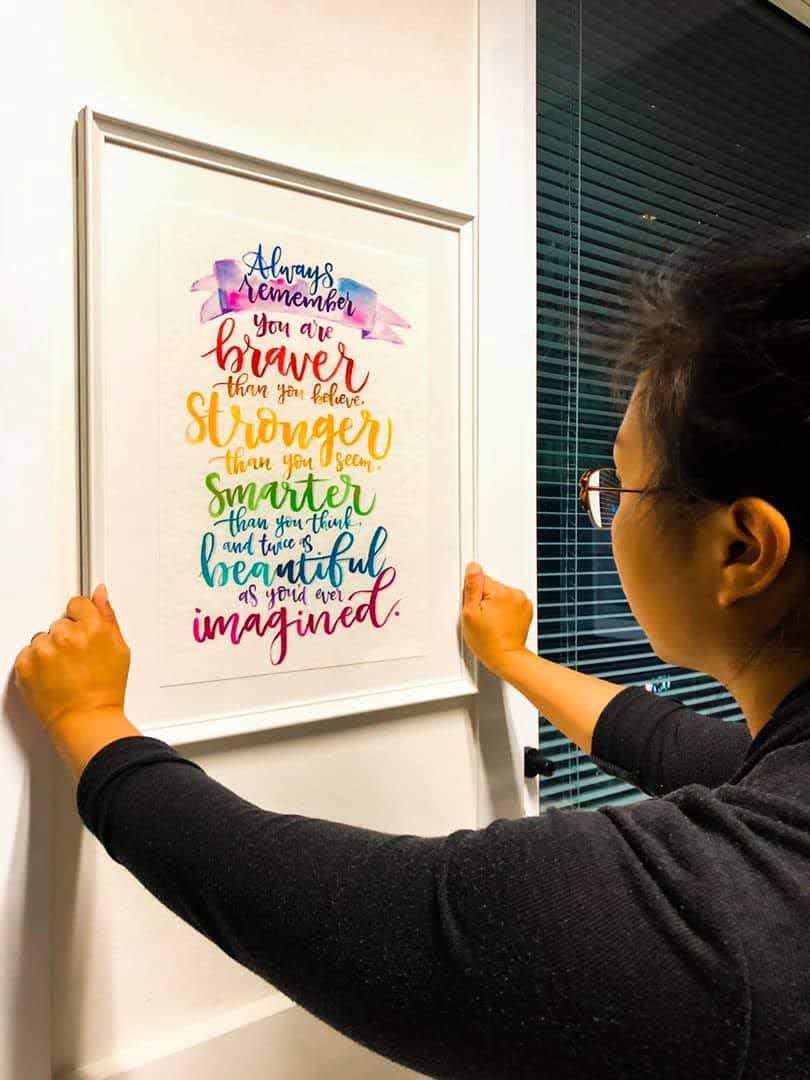 Always
remember
you are
braver
than you believe,
Stronger
than you seem,
Smarter
than you think,
and twice as
beautiful
as you'd ever
imagined.